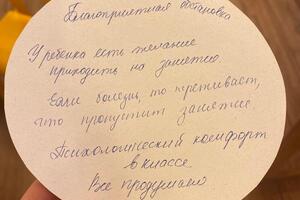 Благоприятная обстановка
У ребенка есть желание
приходить на занятие.
Если болеит, то преживает,
что пропустит занятие.
Психологический комфорт
в классе.
Все продумаем